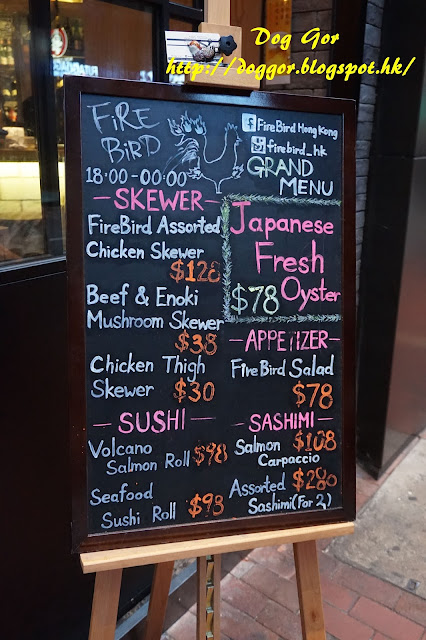 Dog Gor
http://doggor.blogspot.hk/
FiRE
BiRD
FireBird HongKong
firebird_hk
18:00-00:00
GRAND
MENU
-SKEWER-
FireBird Assorted
Chicken Skewer
$128
Beef & Enoki
Mushroom Skewer
$38
Chicken Thigh
Skewer $30
Japanese
Fresh
$78 Oyster
-APPETIZER-
FireBird Salad
$78
-SUSHI-
Volcano $98
Salmon Roll
Seafood
Sushi Roll $93
-SASHIMI-
Salmon $108
Carpaccio
Assorted $280
Sashimi (For 2)